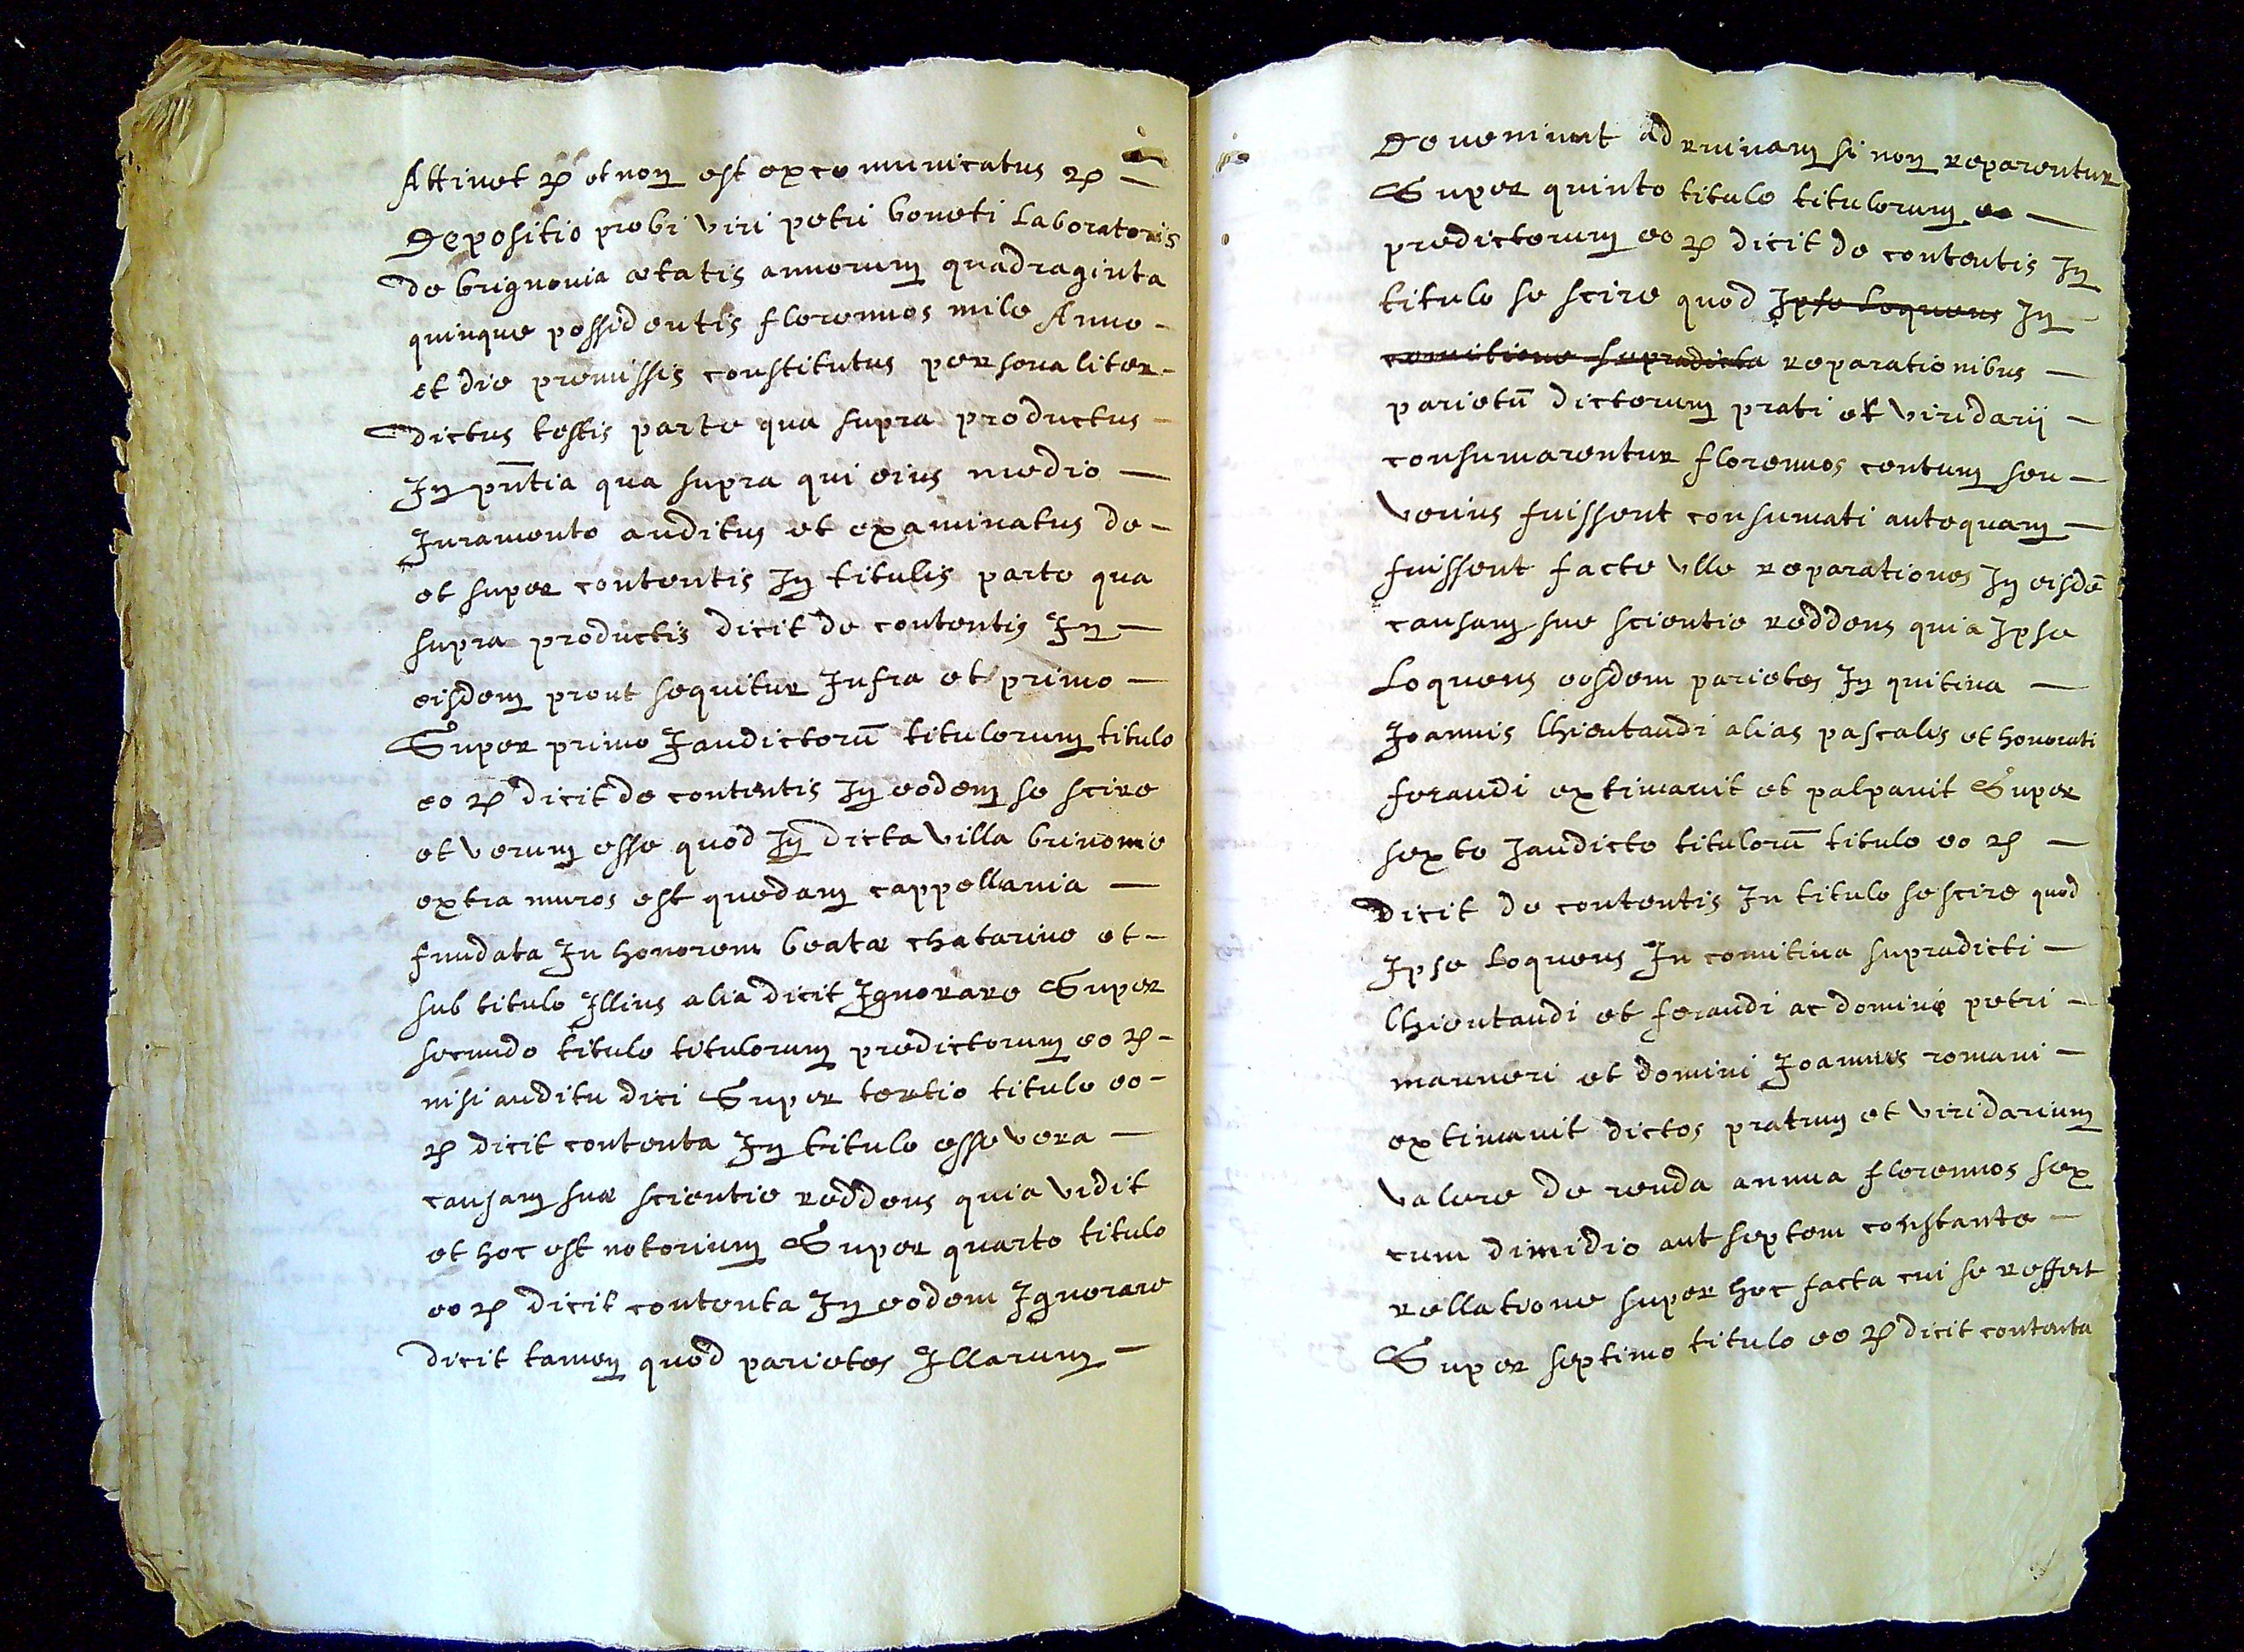 Attinet etc et non est excomunicatus etc
Depositio probi viri petri boneti Laboratoris
de brignonia ætatis annorum quadraginta
quinque possidentis florennos mile Anno
et die premissis constitutus personaliter
dictus testis parte qua supra productus
In pn̄tia qua supra qui eius medio
Juramento auditus et examinatus de
et super contentis In titulis parte qua
supra productis dicit de contentis In
eisdem prout sequitur Infra et primo
Super primo Jandictorū titulorum titulo
eo etc dicit de contentis In eodem se scire
et verum esse quod In dicta villa brinonie
extra muros est quedam cappellania
fundata In honorem beatæ chatarine et
sub titulo Illius alia dicit Ignorare Super
secundo titulo titulorum predictorum eo etc
nisi auditu dici Super tertio titulo eo
etc dicit contenta In titulo esse vera
causam suæ scientie reddens quia vidit
et hoc est notorium Super quarto titulo
eo etc dicit contenta In eodem Ignorare
dicit tamen quod parietes Illarum
Deveniunt ad ruinam si non reparentur
Super quinto titulo titulorum eo
predictorum eo etc dicit de contentis In
titulo se scire quod Ipse Loquens In
comitiva supradicta reparationibus
parietū dictorum prati et viridarij
consumarentur florennos centum seu
verius fuissent consumati antequam
fuissent facte ulle reparationes In eisdē
causam sue scientie reddens quia Ipse
Loquens eosdem parietes In
Joannis lhieutaudi alias pascalis et honorati
feraudi extimavit et palpavit Super
sexto Jandicto titulorū titulo eo etc
Dicit de contentis In titulo se scire quod
Ipse Loquens In comitiva supradicti
lhieutaudi et feraudi ac domini petri
manneri et domini Joannis romani
extimavit dictos pratum et viridarium
valere de renda annua florennos sex
cum dimidio aut septem constante
rellatione super hoc facta cui se reffert
Super septimo titulo eo etc dicit contenta